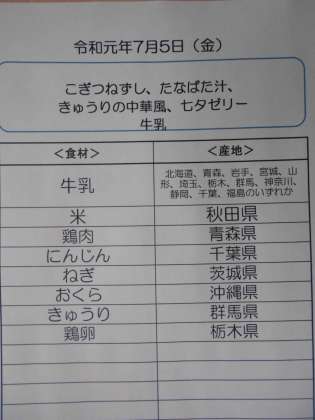 令和元年7月5日（金）
こぎつねずし、たなばた汁、
きゅうりの中華風、七夕ゼリー
牛乳
＜食材＞ ＜産地＞
牛乳 北海道、青森、岩手、宮城、山
形、埼玉、栃木、群馬、神奈川、
静岡、千葉、福島のいずれか
米 秋田県
鶏肉 青森県
にんじん 千葉県
ねぎ 茨城県
おくら 沖縄県
きゅうり 群馬県
鶏卵 栃木県